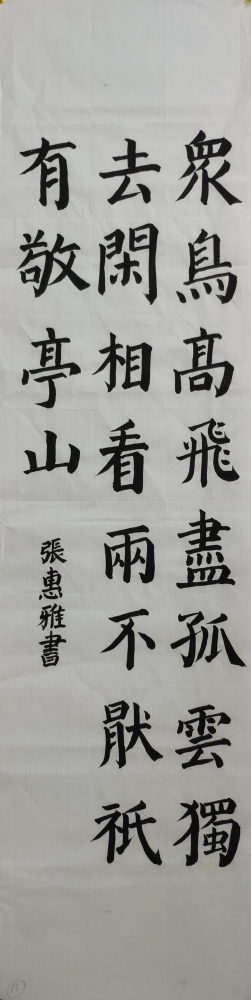 眾鳥髙飛盡孤雲獨
去閑相看兩不猒祇
有敬亭山
張惠雅書